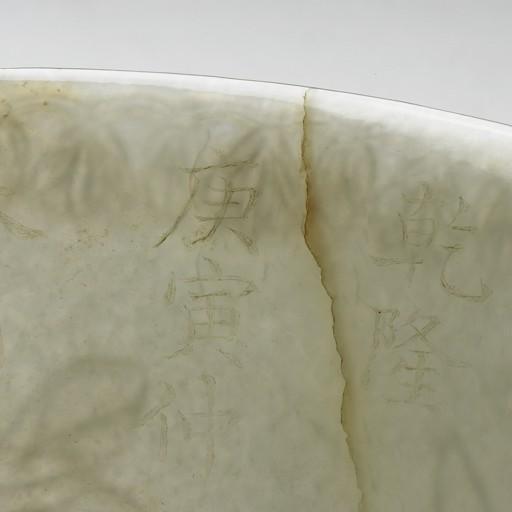 乾隆
庚寅仲